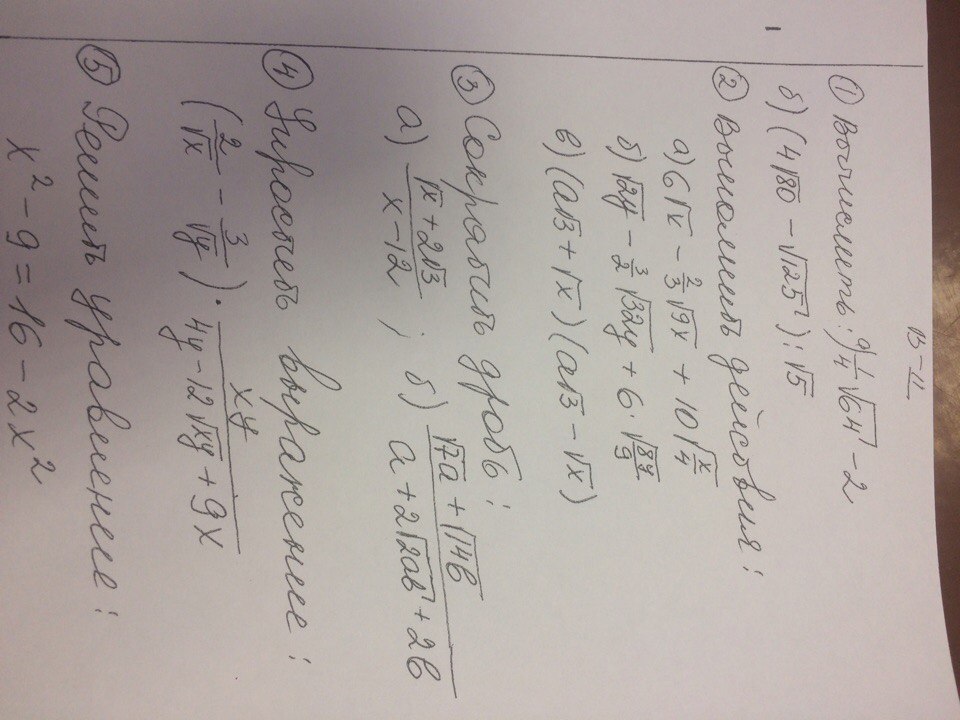 В-II
① Вычислить: а) 1/4 √64 - 2
б) (4√80 - √125) : √5
② Выполнить действия:
а) 6√x - 2/3 √9x + 10√(x/4)
б) √2y - 3/2 √32y + 6·√(8y/9)
в) (a√3 + √x)(a√3 - √x)
③ Сократить дробь:
а) (√x + 2√3)/(x - 12) ; б) (√7a + √14b)/(a + 2√2ab + 2b)
④ Упростить выражение:
(2/√x - 3/√y) · xy/(4y - 12√xy + 9x)
⑤ Решить уравнение:
x² - 9 = 16 - 2x²